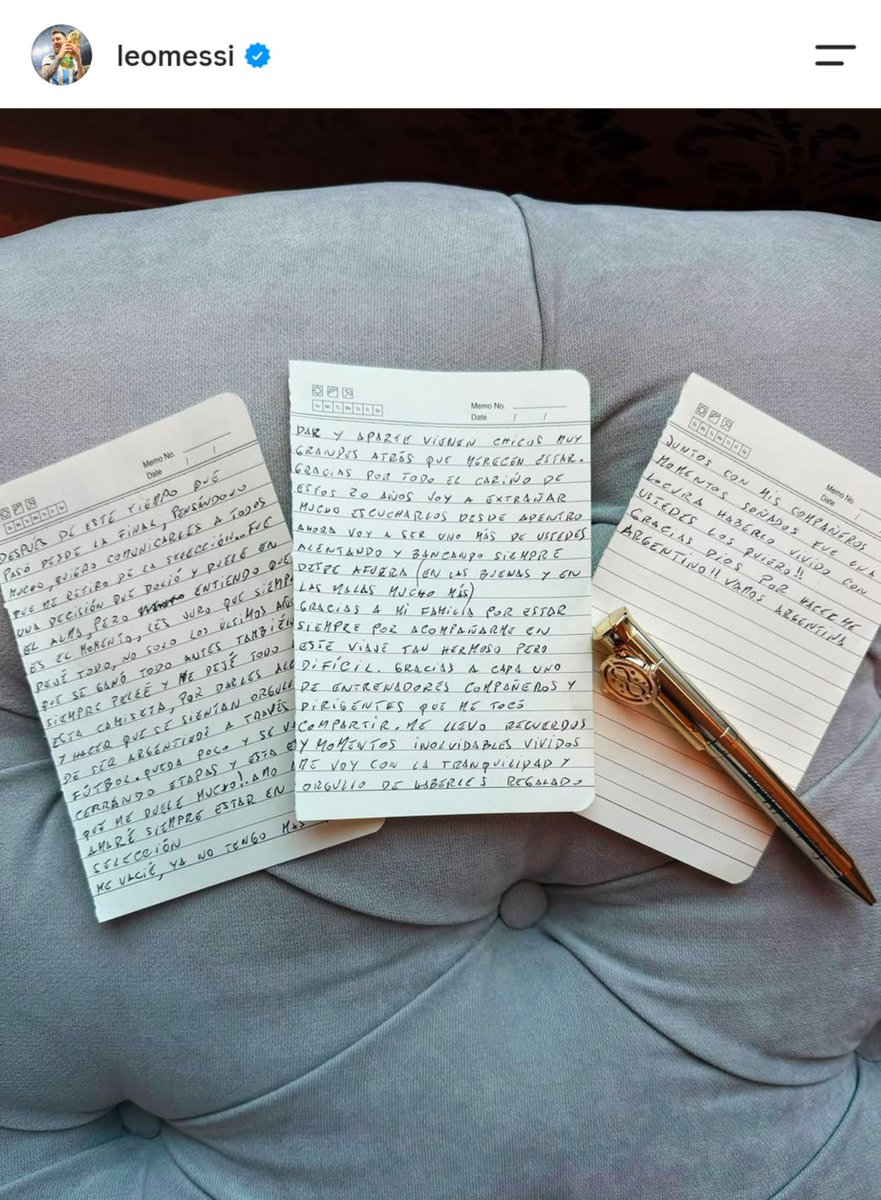 leomessi
Memo No.
Date / /
DESPUÉS DE ESTE TIEMPO QUE
PASÓ DESDE LA FINAL, PENSÁNDOLO
MUCHO, QUIERO COMUNICARLES A TODOS
QUE ME RETIRO DE LA SELECCIÓN.. FUE
UNA DECISIÓN QUE DOLIÓ Y DUELE EN
EL ALMA, PERO ENTIENDO QUE
ES EL MOMENTO, LES JURO QUE SIEMPRE
DEJÉ TODO, NO SOLO LOS ÚLTIMOS AÑOS
QUE SE GANÓ TODO ANTES TAMBIÉN
SIEMPRE PELEÉ Y ME DEJÉ TODO
ESTA CAMISETA, POR DARLES
Y HACER QUE SE SIENTAN
DE SER ARGENTINOS A TRAVÉS
FÚTBOL. QUEDA POCO Y SE
CERRANDO ETAPAS Y ESTA
QUE ME DUELE MUCHO!. AMO
AMARÉ SIEMPRE ESTAR EN
SELECCIÓN
ME VACIÉ, YA NO TENGO
Memo No.
Date / /
DAR Y APARTE VIENEN CHICOS MUY
GRANDES ATRÁS QUE MERECEN ESTAR.
GRACIAS POR TODO EL CARIÑO DE
ESTOS 20 AÑOS VOY A EXTRAÑAR
MUCHO ESCUCHARLOS DESDE ADENTRO
AHORA VOY A SER UNO MÁS DE USTEDES
ALENTANDO Y BANCANDO SIEMPRE
DESDE AFUERA (EN LAS BUENAS Y EN
LAS MALAS MUCHO MÁS)
GRACIAS A MI FAMILIA POR ESTAR
SIEMPRE POR ACOMPAÑARME EN
ESTE VIAJE TAN HERMOSO PERO
DIFÍCIL. GRACIAS A CADA UNO
DE ENTRENADORES COMPAÑEROS Y
DIRIGENTES QUE ME TOCÓ
COMPARTIR. ME LLEVO RECUERDOS
Y MOMENTOS INOLVIDABLES VIVIDOS
ME VOY CON LA TRANQUILIDAD Y
ORGULLO DE HABERLES REGALADO
Memo No.
Date /
JUNTOS CON MIS COMPAÑEROS
MOMENTOS SOÑADOS FUE UNA
LOCURA HABERLO VIVIDO CON
USTEDES LOS QUIERO!!
GRACIAS DIOS POR HACERME
ARGENTINO!! VAMOS ARGENTINA